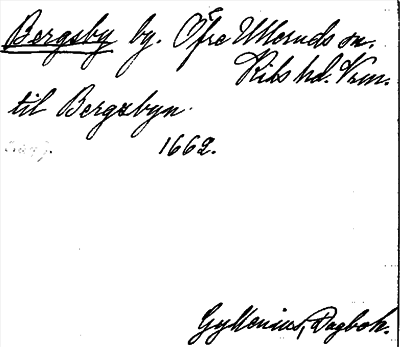 Bergsby by. Öfre Ulleruds sn.
Kils hd. Vrm.
til Bergsbyn.
1662.
Gyllenius, Dagbok.